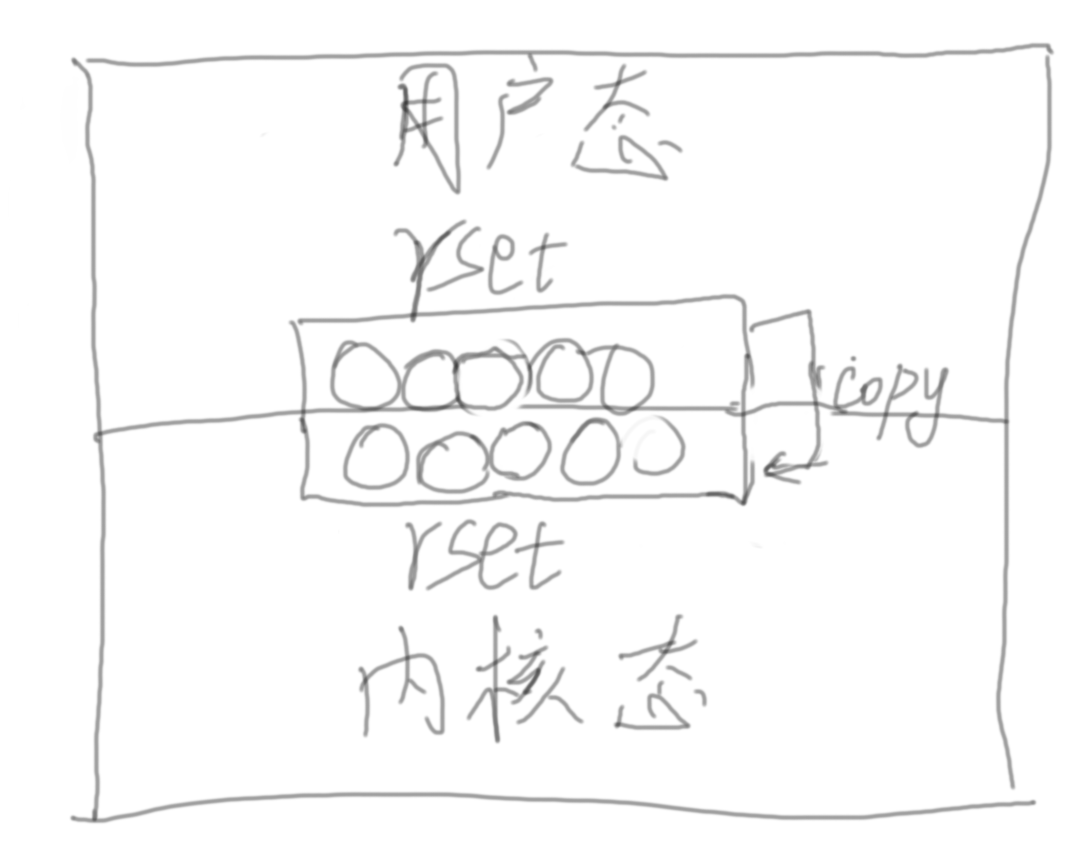 用户态
rset
copy
rset
内核态